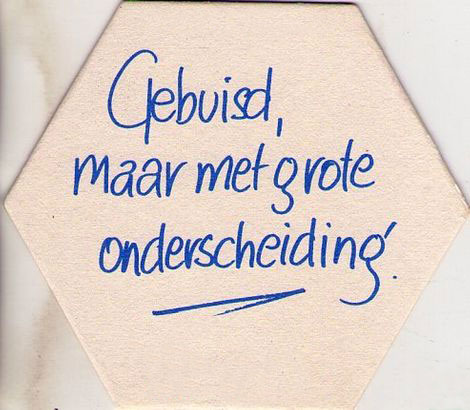 Gebuisd,
maar met grote
onderscheiding'.